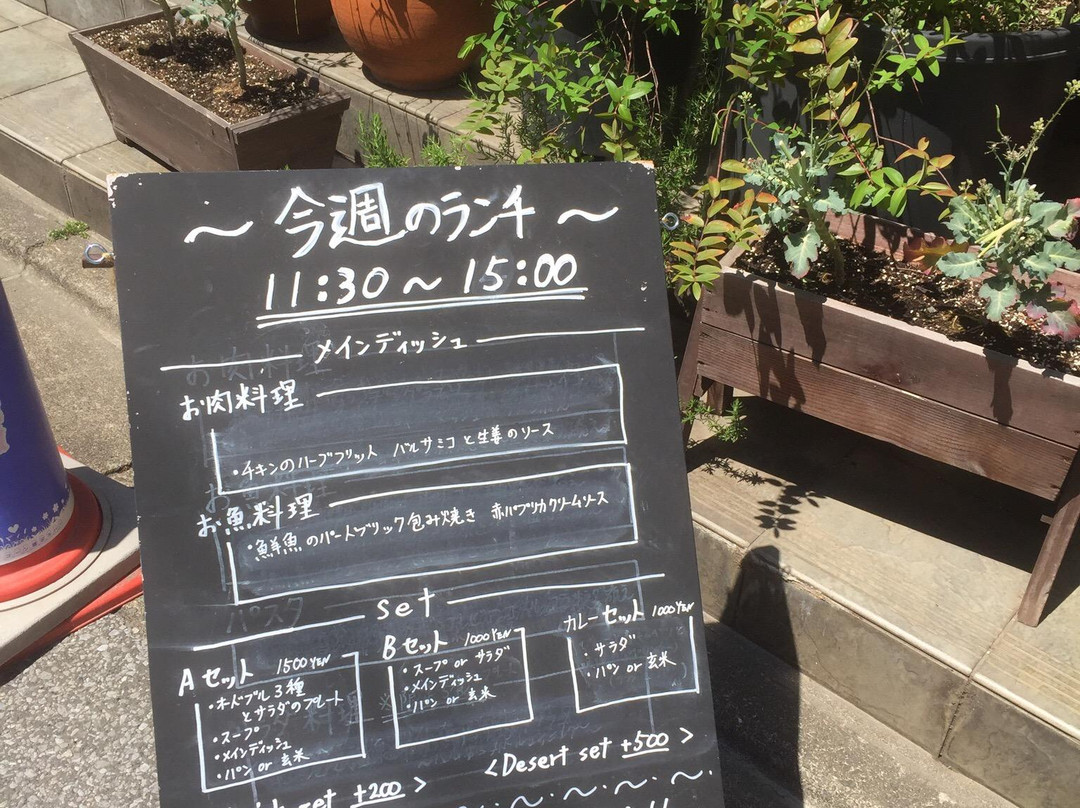 ～今週のランチ～
11:30～15:00
メインディッシュ
お肉料理
・チキンのハーブフリット バルサミコと生姜のソース
お魚料理
・鮮魚のパートブリック包み焼き 赤パプリカクリームソース
set
Aセット 1500YEN
・オードブル3種
とサラダのプレート
・スープ
・メインディッシュ
・パン or 玄米
Bセット 1000YEN
・スープ or サラダ
・メインディッシュ
・パン or 玄米
カレーセット 1000YEN
・サラダ
・パン or 玄米
set +200 >
<Desert set +500 >